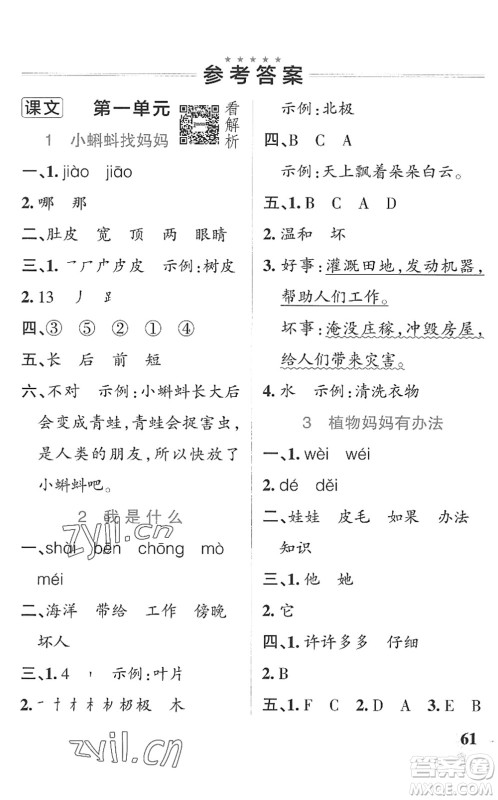 参考答案
课文 第一单元 看解析
1 小蝌蚪找妈妈
一、1. jiào jiāo
2. 哪 那
二、肚皮 宽 顶 两 眼睛
三、1. 示例：树皮
2. 13 丿
四、③ ⑤ ② ① ④
五、长 后 前 短
六、不对 示例：小蝌蚪长大后
会变成青蛙，青蛙会捉害虫，
是人类的朋友，所以快放了
小蝌蚪吧。
2 我是什么
一、shài bēn chōng mò
méi
二、海洋 带给 工作 傍晚
坏人
三、1. 4 示例：叶片
2. 木
示例：北极
四、B C A
示例：天上飘着朵朵白云。
五、1. B C A D
2. 温和 坏
3. 好事：灌溉田地，发动机器，
帮助人们工作。
坏事：淹没庄稼，冲毁房屋，
给人们带来灾害。
4. 水 示例：清洗衣物
3 植物妈妈有办法
一、1. wèi wéi
2. dé děi
二、娃娃 皮毛 如果 办法
知识
三、1. 他 她
2. 它
四、1. 许许多多 仔细
2. B
五、1. F C A D B E
61
zyjl.cn
zyjl.cn